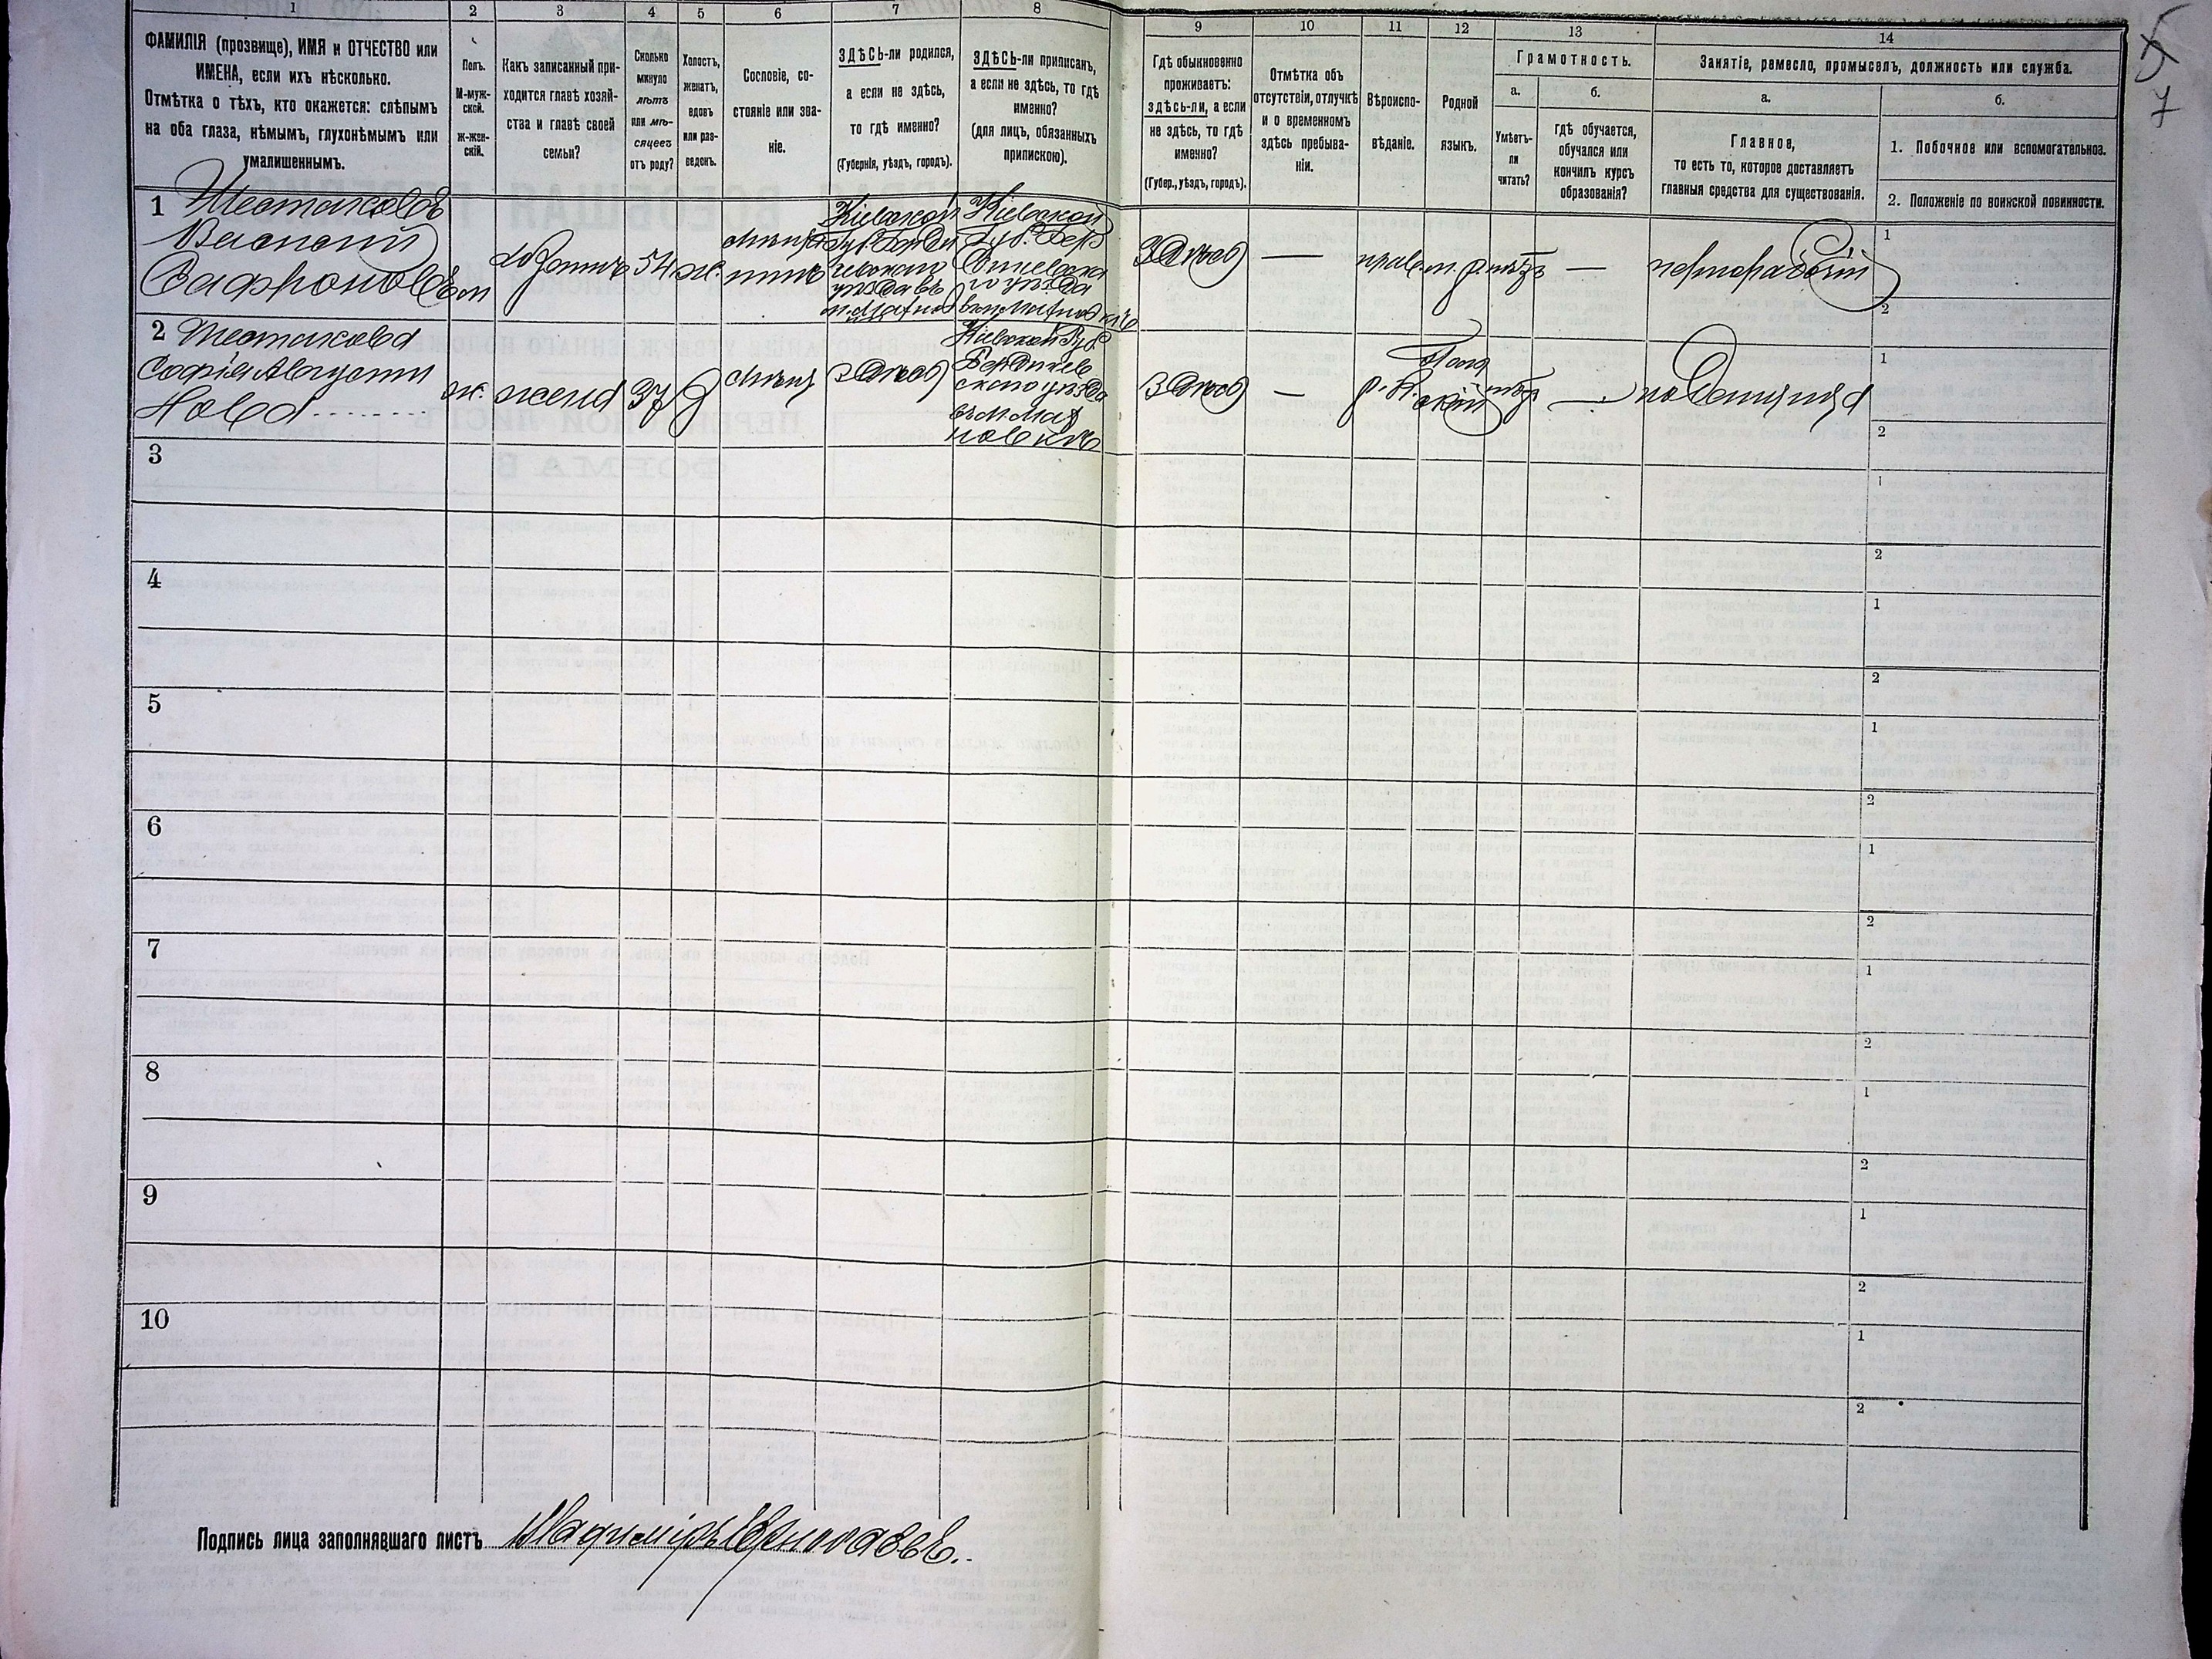 1 2 3 4 5 6 7 8 9 10 11 12 13 14
ФАМИЛІЯ (прозвище), ИМЯ и ОТЧЕСТВО или
ИМЕНА, если ихъ нѣсколько.
Отмѣтка о тѣхъ, кто окажется: слѣпымъ
на оба глаза, нѣмымъ, глухонѣмымъ или
умалишеннымъ.
Полъ.
М-муж-
ской.
ж-жен-
скій.
Какъ записанный при-
ходится главѣ хозяй-
ства и главѣ своей
семьи?
Сколько
минуло
лѣтъ
или мѣ-
сяцевъ
отъ роду?
Холостъ,
женатъ,
вдовъ
или раз-
веденъ.
Сословіе, со-
стояніе или зва-
ніе.
ЗДѢСЬ-ли родился,
а если не здѣсь,
то гдѣ именно?
(Губернія, уѣздъ, городъ).
ЗДѢСЬ-ли приписанъ,
а если не здѣсь, то гдѣ
именно?
(для лицъ, обязанныхъ
припискою).
Гдѣ обыкновенно
проживаетъ:
здѣсь-ли, а если
не здѣсь, то гдѣ
именно?
(Губер., уѣздъ, городъ).
Отмѣтка объ
отсутствіи, отлучкѣ
и о временномъ
здѣсь пребыва-
ніи.
Вѣроиспо-
вѣданіе.
Родной
языкъ.
Грамотность.
а.
Умѣетъ-
ли
читать?
б.
гдѣ обучается,
обучался или
кончилъ курсъ
образованія?
Занятіе, ремесло, промыселъ, должность или служба.
а.
Главное,
то есть то, которое доставляетъ
главныя средства для существованія.
б.
1. Побочное или вспомогательное.
2. Положеніе по воинской повинности.
1
Василій
м
хозяинъ
54
ж.
Кіевской
Кіевской
Губ.
уѣзда въ
уѣзда
здѣсь
—
прав.
—
чернорабочій
1
2
2
Софія Августи
нова
ж.
жена
37
здѣсь
Кіевской Губ.
Бердичев
скаго уѣзда
здѣсь
—
р. к.
Поль
скій
—
поденщица
1
2
3
1
2
4
1
2
5
1
2
6
1
2
7
1
2
8
1
2
9
1
2
10
1
2
Подпись лица заполнявшаго листъ
7